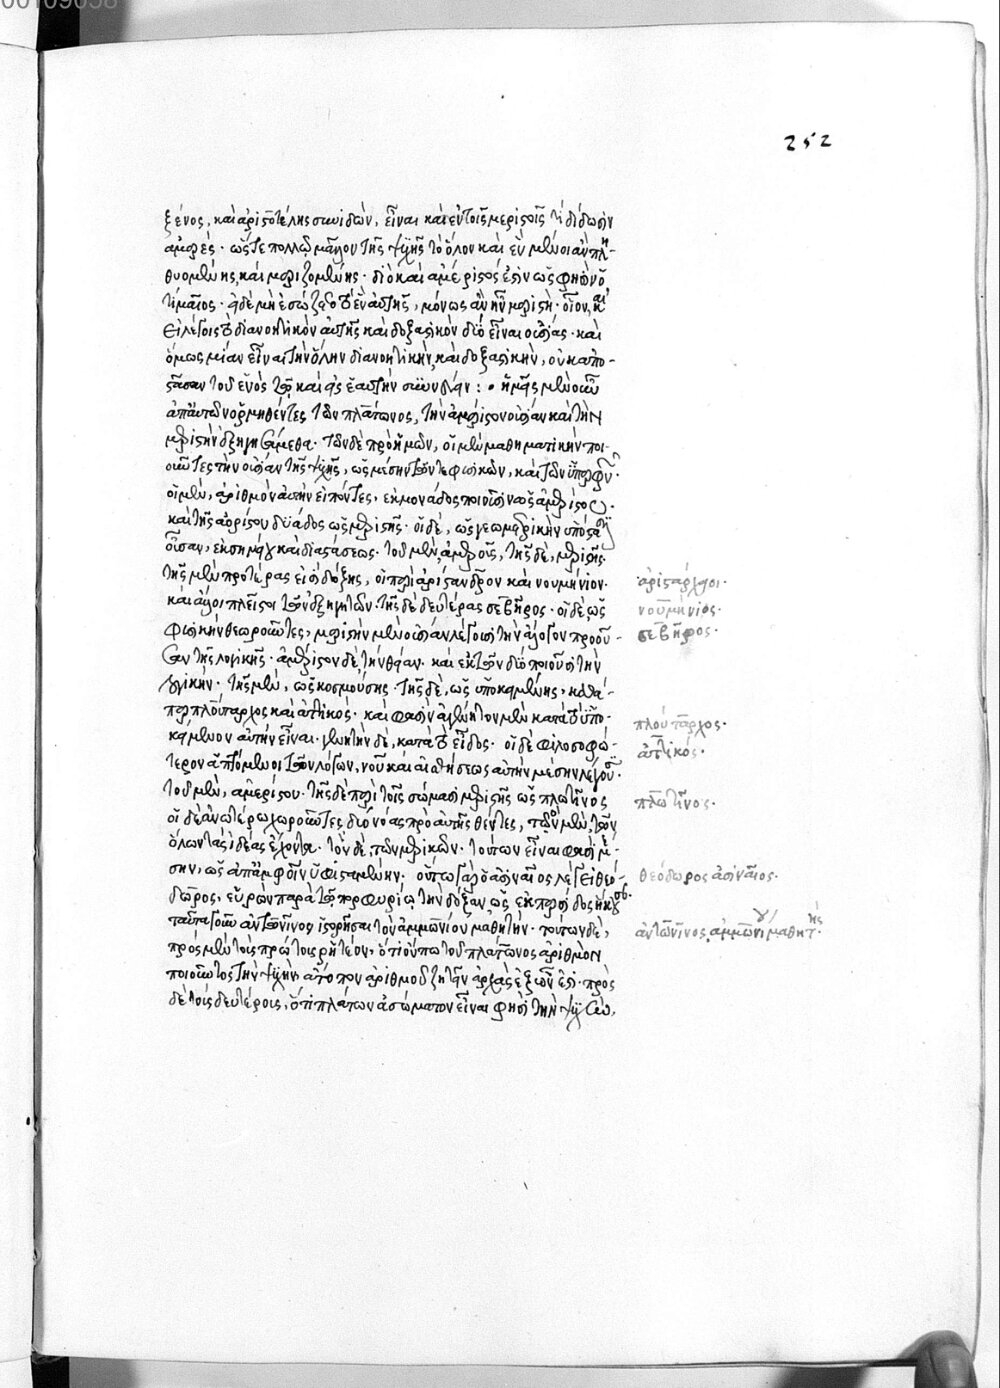 252
ξένος, καὶ ἀριστοτέλης συνιδὼν, εἶναι καὶ ἐν τοῖς μεριστοῖς τί δίδωσιν
ἀμερές. ὥστε πολλῷ μᾶλλον τῆς ψυχῆς τὸ ὅλον καὶ ἓν μένοι ἂν πλη-
θυομένης καὶ μεριζομένης. διὸ καὶ ἀμέριστος ἐστὶν ὥς φησιν ὁ
τίμαιος. εἰ δὲ μὴ ἐσώζετο τὸ ἓν αὐτῆς, μόνως ἂν ἦν μεριστή. οἷον, καὶ
εἰ λέγοις τὸ διανοητικὸν αὐτῆς καὶ δοξαστικὸν δύο εἶναι οὐσίας. καὶ
ὅμως μίαν εἶναι τὴν ὅλην διανοητικὴν καὶ δοξαστικὴν, οὐκ ἀπο-
σπᾶσαν τοῦ ἑνὸς καὶ εἰς ἑαυτὴν συννεύειν: ἡμεῖς μὲν οὖν
ἀπ' αὐτῶν ὁρμηθέντες τῶν πλάτωνος, τὴν ἀμέριστον οὐσίαν καὶ τὴν
μεριστὴν ἐξηγησάμεθα. τῶν δὲ πρὸ ἡμῶν, οἱ μὲν μαθηματικὴν ποι-
οῦντες τὴν οὐσίαν τῆς ψυχῆς, ὡς μέσην τῶν τε φυσικῶν, καὶ τῶν ὑπερφυῶν.
οἱ μὲν, ἀριθμὸν αὐτὴν εἰπόντες, ἐκ μονάδος ποιοῦσιν ὡς ἀμερίστου.
καὶ τῆς ἀορίστου δυάδος ὡς μεριστῆς. οἱ δὲ, ὡς γεωμετρικὴν ὑπόστασιν
οὖσαν, ἐκ σημείου καὶ διαστάσεως. τοῦ μὲν, ἀμεροῦς, τῆς δὲ, μεριστῆς.
τῆς μὲν προτέρας εἰσὶ δόξης, οἱ περὶ ἀρίστανδρον καὶ νουμήνιον.
καὶ ἄλλοι πλεῖστοι τῶν ἐξηγητῶν. τῆς δὲ δευτέρας σεβῆρος. οἱ δὲ, ὡς
φυσικὴν θεωροῦντες, μεριστὴν μὲν οὐσίαν λέγουσι τὴν ἄλογον προοῦ-
σαν τῆς λογικῆς. ἀμέριστον δὲ, τὴν θείαν. καὶ ἐκ τῶν δύο ποιοῦσι τὴν
λογικήν. τῆς μὲν, ὡς κοσμούσης. τῆς δὲ, ὡς ὑποκειμένης, καθά-
περ πλούταρχος καὶ ἀττικός. καὶ φασὶν ἀγένητον μὲν κατὰ τὸ ὑπο-
κείμενον αὐτὴν εἶναι. γενητὴν δὲ, κατὰ τὸ εἶδος. οἱ δὲ φιλοσοφώ-
τερον ἁπτόμενοι τῶν λόγων, νοῦ καὶ αἰσθήσεως αὐτὴν μέσην λέγουσι.
τοῦ μὲν, ἀμερίστου. τῆς δὲ περὶ τοῖς σώμασι μεριστῆς ὡς πλωτῖνος
οἱ δὲ ἀνωτέρω χωροῦντες δύο νόας πρὸ αὐτῆς θέντες, τὸν μὲν, τῶν
ὅλων τὰς ἰδέας ἔχοντα. τὸν δὲ, τῶν μερικῶν. τούτων εἶναι φασὶ μέ-
σην, ὡς ἀπ' ἀμφοῖν ὑφισταμένην. οὕτω γὰρ ὁ ἀσιναῖος λέγει θεό-
δωρος, εὑρὼν παρὰ τῷ πορφυρίῳ τὴν δόξαν, ὡς ἐκ περσίδος ἡκούσης.
ταῦτα γοῦν ἀντωνῖνος ἱστορῆσαι τὸν ἀμμωνίου μαθητήν. τούτων δὲ,
πρὸς μὲν τοὺς πρώτους ῥητέον, ὅτι οὔπω τοῦ πλάτωνος ἀριθμὸν
ποιοῦντος τὴν ψυχὴν, ἄτοπον ἀριθμοῦ ζητεῖν ἀρχὰς ἐξ ὧν ἐστί. πρὸς
δὲ τοὺς δευτέρους, ὅτι πλάτων ἀσώματον εἶναι φησὶ τὴν ψυχήν,
ἀρίσταρχοι.
νουμήνιος.
σεβῆρος.
πλούταρχος.
ἀττικός.
πλωτῖνος.
θεόδωρος ἀσιναῖος.
ἀντωνῖνος ἀμμωνίου μαθητής.